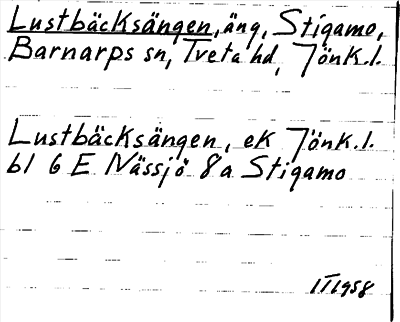 Lustbäcksängen, äng, Stigamo,
Barnarps sn, Tveta hd, Jönk.l.
Lustbäcksängen, ek Jönk.l.
bl 6 E Nässjö 8a Stigamo
1958